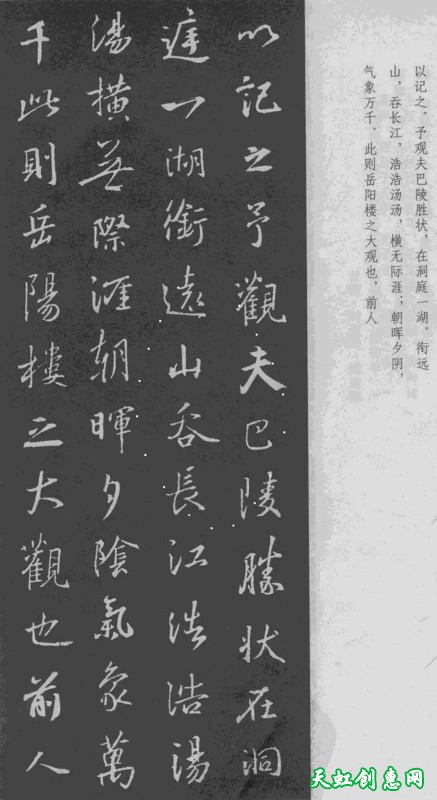 以记之。予观夫巴陵胜状，在洞庭一湖。衔远
山，吞长江，浩浩汤汤，横无际涯；朝晖夕阴，
气象万千。此则岳阳楼之大观也，前人
以記之予觀夫巴陵勝状在洞
庭一湖銜遠山吞長江浩浩湯
湯横無際涯朝暉夕陰氣象萬
千此則岳陽樓之大觀也前人
天虹创惠网